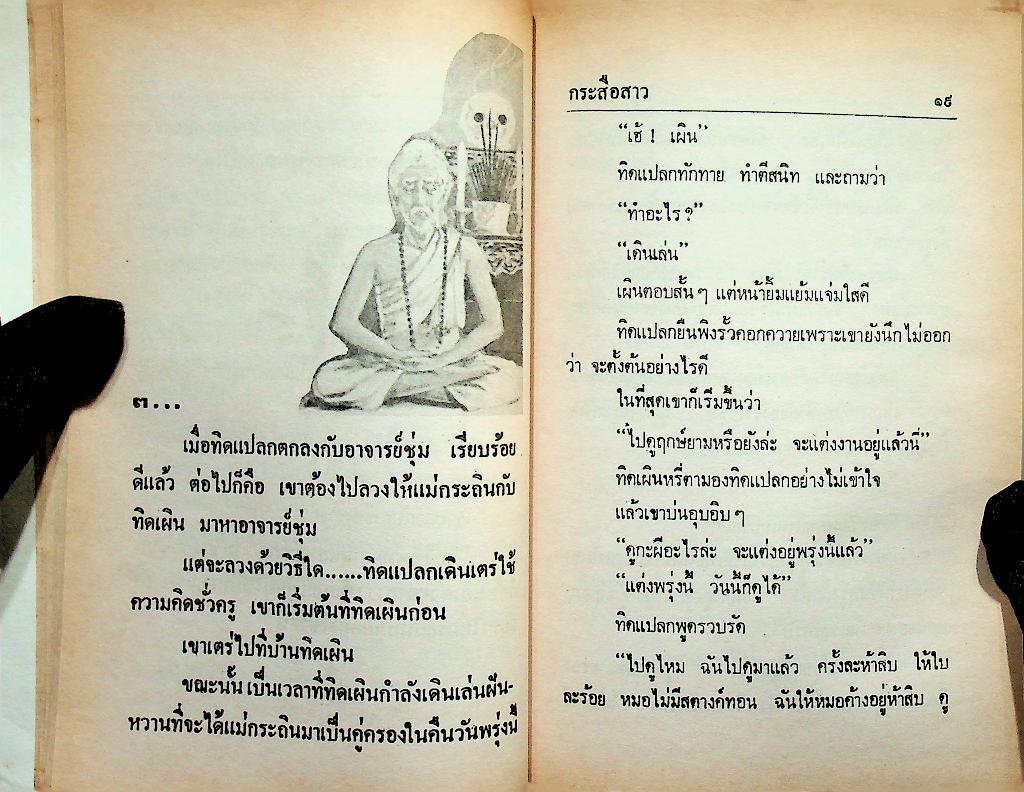 ๓...
เมื่อทิดแปลกตกลงกับอาจารย์ชุ่ม เรียบร้อย
ดีแล้ว ต่อไปก็คือ เขาต้องไปลวงให้แม่กระถินกับ
ทิดเผิน มาหาอาจารย์ชุ่ม
แต่จะลวงด้วยวิธีใด......ทิดแปลกเดินเตร่ใช้
ความคิดชั่วครู่ เขาก็เริ่มต้นที่ทิดเผินก่อน
เขาเตร่ไปที่บ้านทิดเผิน
ขณะนั้น เป็นเวลาที่ทิดเผินกำลังเดินเล่นฝัน-
หวานที่จะได้แม่กระถินมาเป็นคู่ครองในคืนวันพรุ่งนี้
กระสือสาว ๑๙
“เฮ้ ! เผิน”
ทิดแปลกทักทาย ทำตีสนิท และถามว่า
“ทำอะไร ?”
“เดินเล่น”
เผินตอบสั้น ๆ แต่หน้ายิ้มแย้มแจ่มใสดี
ทิดแปลกยืนพิงรั้วคอกควายเพราะเขายังนึกไม่ออก
ว่า จะตั้งต้นอย่างไรดี
ในที่สุดเขาก็เริ่มขึ้นว่า
“ไปดูฤกษ์ยามหรือยังล่ะ จะแต่งงานอยู่แล้วนี่”
ทิดเผินหรี่ตามองทิดแปลกอย่างไม่เข้าใจ
แล้วเขาบ่นอุบอิบ ๆ
“ดูกะผีอะไรล่ะ จะแต่งอยู่พรุ่งนี้แล้ว”
“แต่งพรุ่งนี้ วันนี้ก็ดูได้”
ทิดแปลกพูดรวบรัด
“ไปดูไหม ฉันไปดูมาแล้ว ครั้งละห้าสิบ ให้ใบ
ละร้อย หมอไม่มีสตางค์ทอน ฉันให้หมอค้างอยู่ห้าสิบ ดู